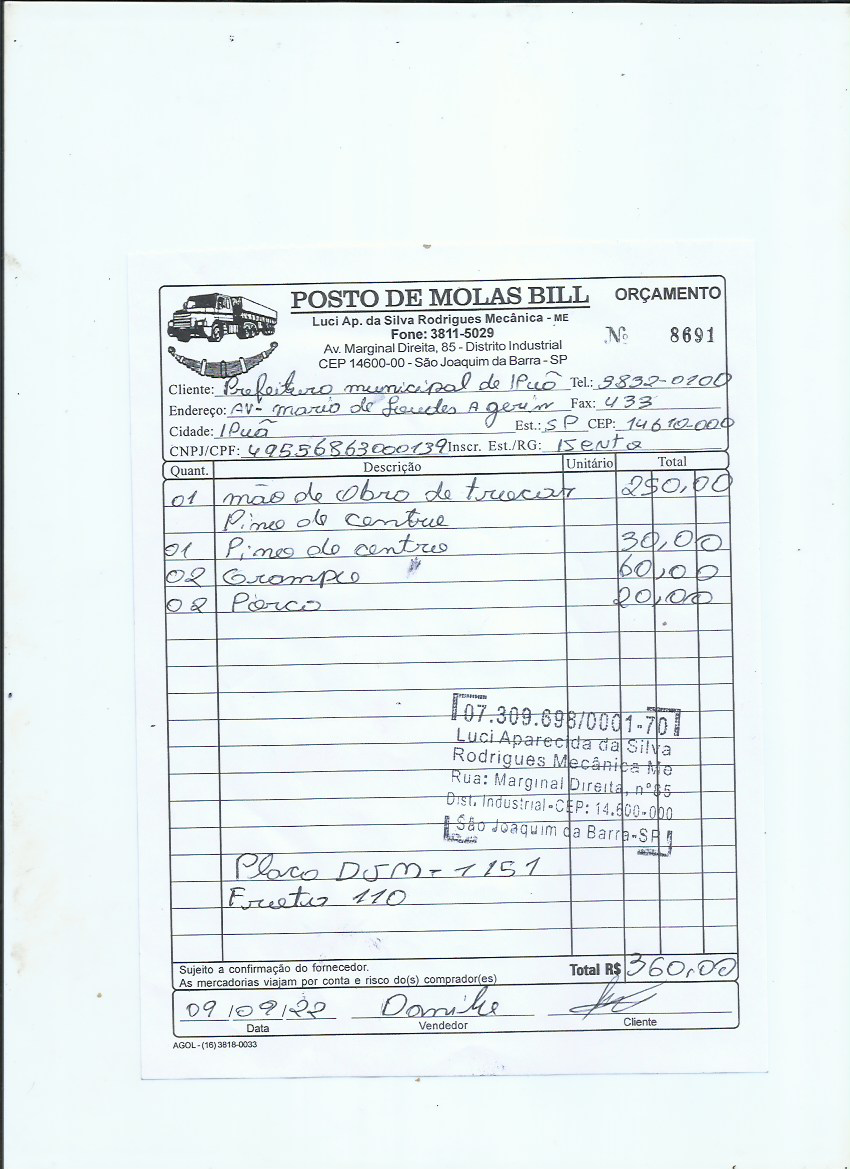 POSTO DE MOLAS BILL
ORÇAMENTO
Luci Ap. da Silva Rodrigues Mecânica - ME
Fone: 3811-5029
Nº 8691
Av. Marginal Direita, 85 - Distrito Industrial
CEP 14600-00 - São Joaquim da Barra - SP
Cliente: Prefeituro municipal de IPuã Tel.: 3832-0100
Endereço: AV- mario de Agerim Fax: 433
Cidade: IPuã Est.: SP CEP: 14610-000
CNPJ/CPF: 49556863000139 Inscr. Est./RG: Isento
Quant. Descrição Unitário Total
01 mão de obro de truocar 250,00
Pino de centro
01 Pino de centro 30,00
02 Grampo 60,00
02 Porco 20,00
07.309.698/0001-70
Luci Aparecida da Silva
Rodrigues Mecânica Me
Rua: Marginal Direita, nº85
Dist. Industrial-CEP: 14.600-000
São Joaquim da Barra-SP
Placo DJM-1151
110
Sujeito a confirmação do fornecedor.
As mercadorias viajam por conta e risco do(s) comprador(es)
Total R$ 360,00
09/09/22
Data Vendedor Cliente
AGOL - (16) 3818-0033